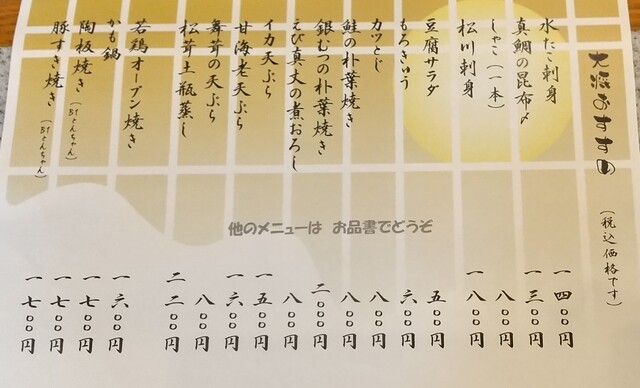 大将おすすめ（税込価格です）
水たこ刺身 一四〇〇円
真鯛の昆布〆 一三〇〇円
しゃこ（一本） 八〇〇円
松川刺身 一八〇〇円
豆腐サラダ 五〇〇円
もろきゅう 六〇〇円
カツとじ 八〇〇円
鮭の朴葉焼き 八〇〇円
銀むつの朴葉焼き 二〇〇〇円
えび真丈の煮おろし 八〇〇円
イカ天ぷら 一五〇〇円
甘海老天ぷら 一六〇〇円
舞茸の天ぷら 八〇〇円
松茸土瓶蒸し 二二〇〇円
若鶏オーブン焼き 一六〇〇円
かも鍋 一七〇〇円
陶板焼き（BIとんちゃん） 一七〇〇円
豚すき焼き（BIとんちゃん） 一七〇〇円
他のメニューは お品書でどうぞ